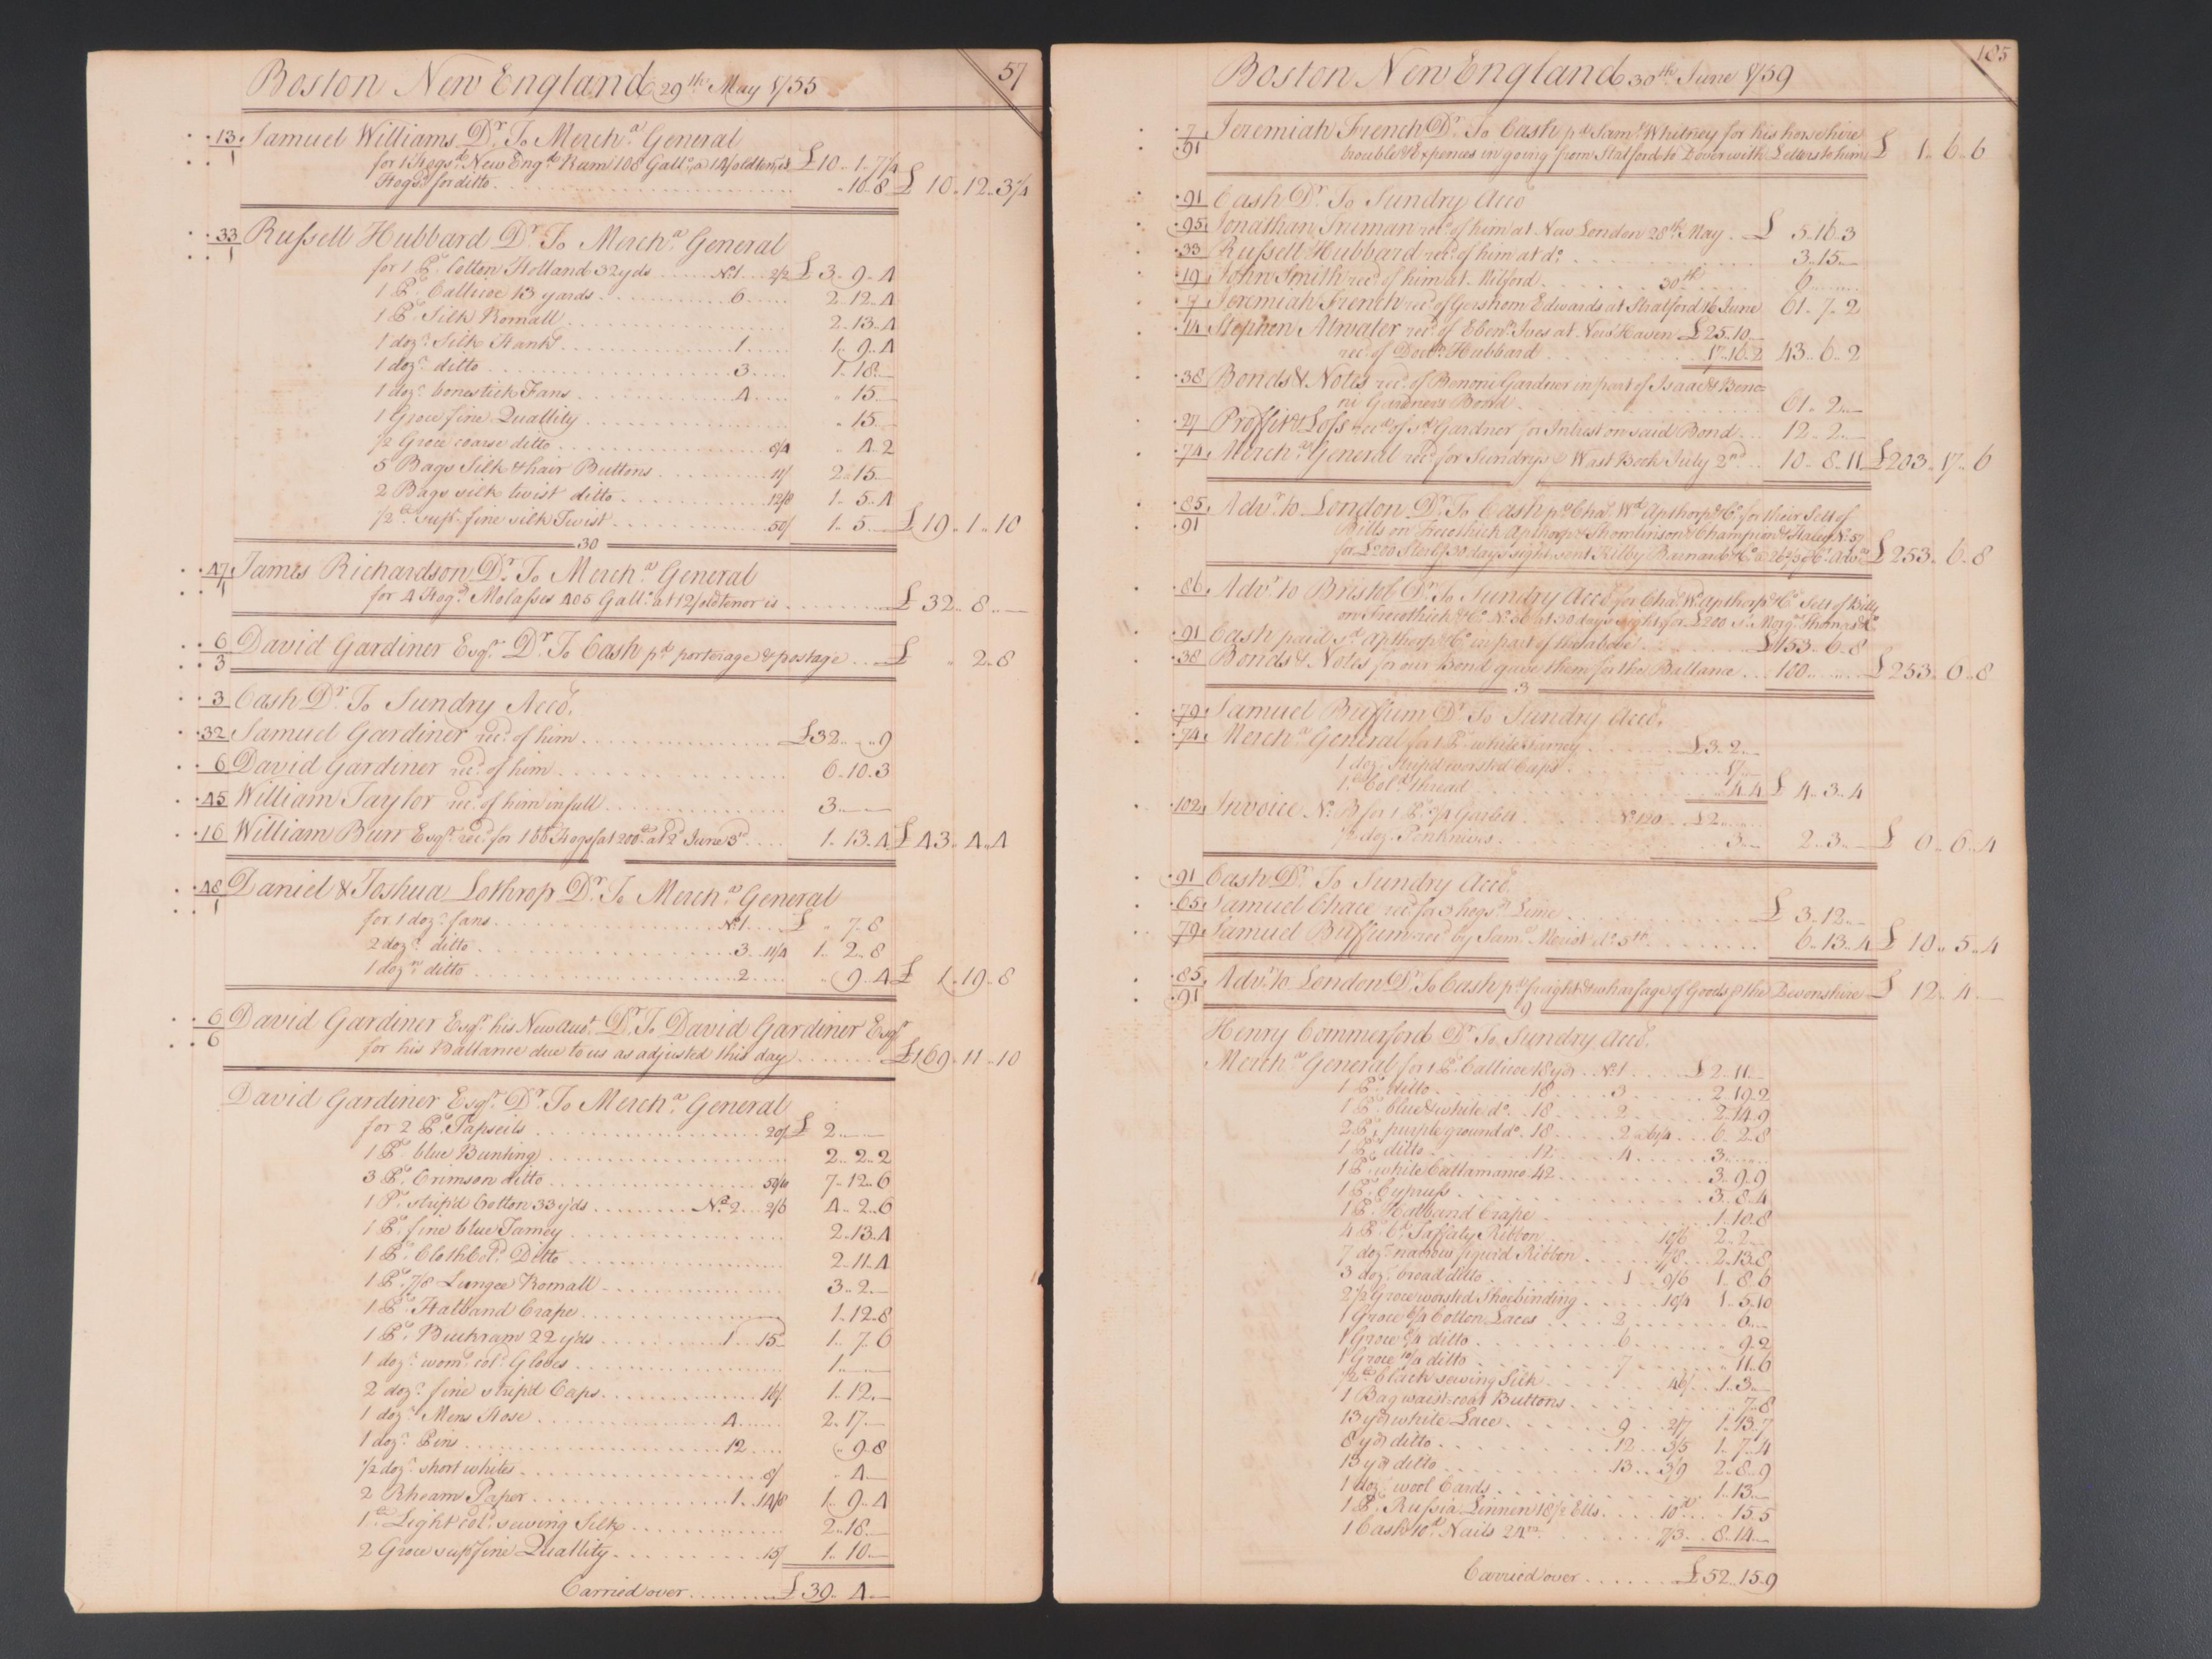 57
Boston New England 29th May 1755
13 Samuel Williams Dr. To Merchs. General
1 for 1 Hogsd. New Engd. Rum 108 Galls. a 14/ oldtenr. is £10..1..7 1/4
Hogsd. for ditto ..10..8 £10..12..3 1/4
33 Russell Hubbard Dr. To Merchs. General
1 for 1 Ps. Cotton Holland 32 yds No. 1 2/2 £3..9..4
1 Ps. Callicoe 13 yards 6 2..12..4
1 Ps. Silk Romall 2..13..4
1 dozn. Silk Hank 1 1..9..4
1 dozn. ditto 3 1..18..
1 dozn. bonestick Fans 4 ..15..
1 Groce fine Quallity ..15..
1/2 Groce coarse ditto 8/4 ..4..2
5 Bags Silk & hair Buttons 11/ 2..15..
2 Bags silk twist ditto 12/8 1..5..4
1/2 lb. supr. fine silk Twist 50/ 1..5.. £19..1..10
30
47 James Richardson Dr. To Merchs. General
1 for 4 Hogds. Molasses 405 Galls. at 12/ oldtenor is £32..8..
6 David Gardiner Esqr. Dr. To Cash pd. porterage & postage £..2..8
3
3 Cash Dr. To Sundry Accots.
32 Samuel Gardiner recd. of him £32....9
6 David Gardiner recd. of him 6..10..3
45 William Taylor recd. of him in full 3....
16 William Burr Esqr. recd. for 1 bb Hogs fat 200 lb. at 2d June 3d 1..13..4 £43..4..4
48 Daniel & Joshua Lothrop Dr. To Merchs. General
1 for 1 dozn. fans No. 1 £..7..8
2 dozn. ditto 3 11/4 1..2..8
1 dozn. ditto 2 ..9..4 £1..19..8
6 David Gardiner Esqr. his New Accot. Dr. To David Gardiner Esqr.
6 for his Ballance due to us as adjusted this day £169..11..10
David Gardiner Esqr. Dr. To Merchs. General
for 2 Ps. Tapseils 20/ £2....
1 Ps. blue Bunting 2..2..2
3 Ps. Crimson ditto 50/10 7..12..6
1 Ps. strip'd Cotton 33 yds No. 2 2/6 4..2..6
1 Ps. fine blue Tamey 2..13..4
1 Ps. Cloth Cold. Ditto 2..11..4
1 Ps. 7/8 Lungee Romall 3..2..
1 Ps. Hatband Crape 1..12..8
1 Ps. Buckram 22 yds 1 15d 1..7..6
1 dozn. woms. cold. Gloves 1....
2 dozn. fine strip'd Caps 16/ 1..12..
1 dozn. Mens Hose 4 2..17..
1 dozn. Pins 12 ..9..8
1/2 dozn. short whites 8/ ..4..
2 Rheam Paper 1 14/8 1..9..4
1 lb. Light cold. sewing Silk 2..18..
2 Groce supr. fine Quallity 15/ 1..10..
Carried over £39..4..
185
Boston New England 30th June 1759
7 Jeremiah French Dr. To Cash pd. Saml. Whitney for his horse hire
91 trouble & Expences in going from Statford to Dover with Letters to him £1..6..6
91 Cash Dr. To Sundry Acco
95 Jonathan Truman recd. of him at New London 28th May £5..16..3
33 Russell Hubbard recd. of him at do. 3..15..
19 John Smith recd. of him at Milford 30th 6....
7 Jeremiah French recd. of Gershom Edwards at Stratford 16 June 61..7..2
14 Stephen Atwater recd. of Ebenr. Ives at New Haven £25..10..
recd. of Doctr. Hubbard 17..16..2 43..6..2
38 Bonds & Notes recd. of Benoni Gardner in part of Isaac & Beno=
ni Gardners Bond 61..2..
27 Proffit & Loss recd. of sd. Gardner for Intrest on said Bond 12..2..
74 Merchs. General recd. for Sundrys Wast Book July 2nd 10..8..11 £203..17..6
85 Advr. to London Dr. To Cash pd. Chas. Wd. Apthorp & Co. for their Sett of
91 Bills on Trecothick Apthorp & Thomlinson & Champion & Haley No. 57
for £200 Sterlg. 30 days sight sent Kilby Barnard & Co. £253..6..8
86 Advr. to Bristol Dr. To Sundry Accots. for Chas. Wd. Apthorp & Co. Sett of Bills
on Trecothick & Co. No. 58 at 30 days sight for £200 Morgn. Thomas & Co.
91 Cash paid sd. Apthorp & Co. in part of the above £153..6..8
38 Bonds & Notes for our Bond gave them for the Ballance 100.... £253..6..8
3
79 Samuel Buffum Dr. To Sundry Accots.
74 Merchs. General for 1 Ps. white Tamey £3..2..
1 doz. strip'd worsted Caps 17..
1 lb. Cold. thread 4..4 £4..3..4
102 Invoice No. B for 1 Ps. 3/4 Garlits No. 120 £2....
1/2 doz. Penknives 3.. 2..3.. £6..6..4
91 Cash Dr. To Sundry Accots.
65 Samuel Chace recd. for 3 hogsds. Lime £3..12..
79 Samuel Buffum recd. by Saml. do. 5th 6..13..4 £10..5..4
85 Advr. to London Dr. To Cash pd. freight & wharfage of Goods p the Devonshire £12..4..
91
9
Henry Commerford Dr. To Sundry Accots.
Merchs. General for 1 Ps. Callicoe 18 yds No. 1 £2..11..
1 Ps. ditto 18 3 2..19..2
1 Ps. blue & white do. 18 2 2..14..9
2 Ps. purple ground do. 18 2 a 61/4 6..2..8
1 Ps. ditto 12 4 3....
1 Ps. white Callamanco 42 3..9..9
1 Ps. Cypruss 3..8..4
1 Ps. Hatband Crape 1..10..8
4 Ps. 6d. Taffaty Ribbon 10/6 2..2..
7 dozn. narrow figur'd Ribbon 7/8 2..13..8
3 dozn. broad ditto 1 9/6 1..8..6
2 1/2 Groce worsted Shoebinding 10/4 1..5..10
1 Groce 6/4 Cotton Laces 2 6..
1 Groce 8/4 ditto 6 ..9..2
1 Groce 10/4 ditto 7 ..11..6
1/2 lb. black sewing Silk 46/ 1..3..
1 Bag waistcoat Buttons 7..8
13 yds white Lace 9 2/7 1..13..7
8 yds ditto 12 3/5 1..7..4
13 yds ditto 13 3/9 2..8..9
1 doz. wool Cards 1..13..
1 Ps. Russia Linnen 18 1/2 Ells 10d 15..5
1 Cask 10d. Nails 24m 7/3 8..14..
Carried over £52..15..9